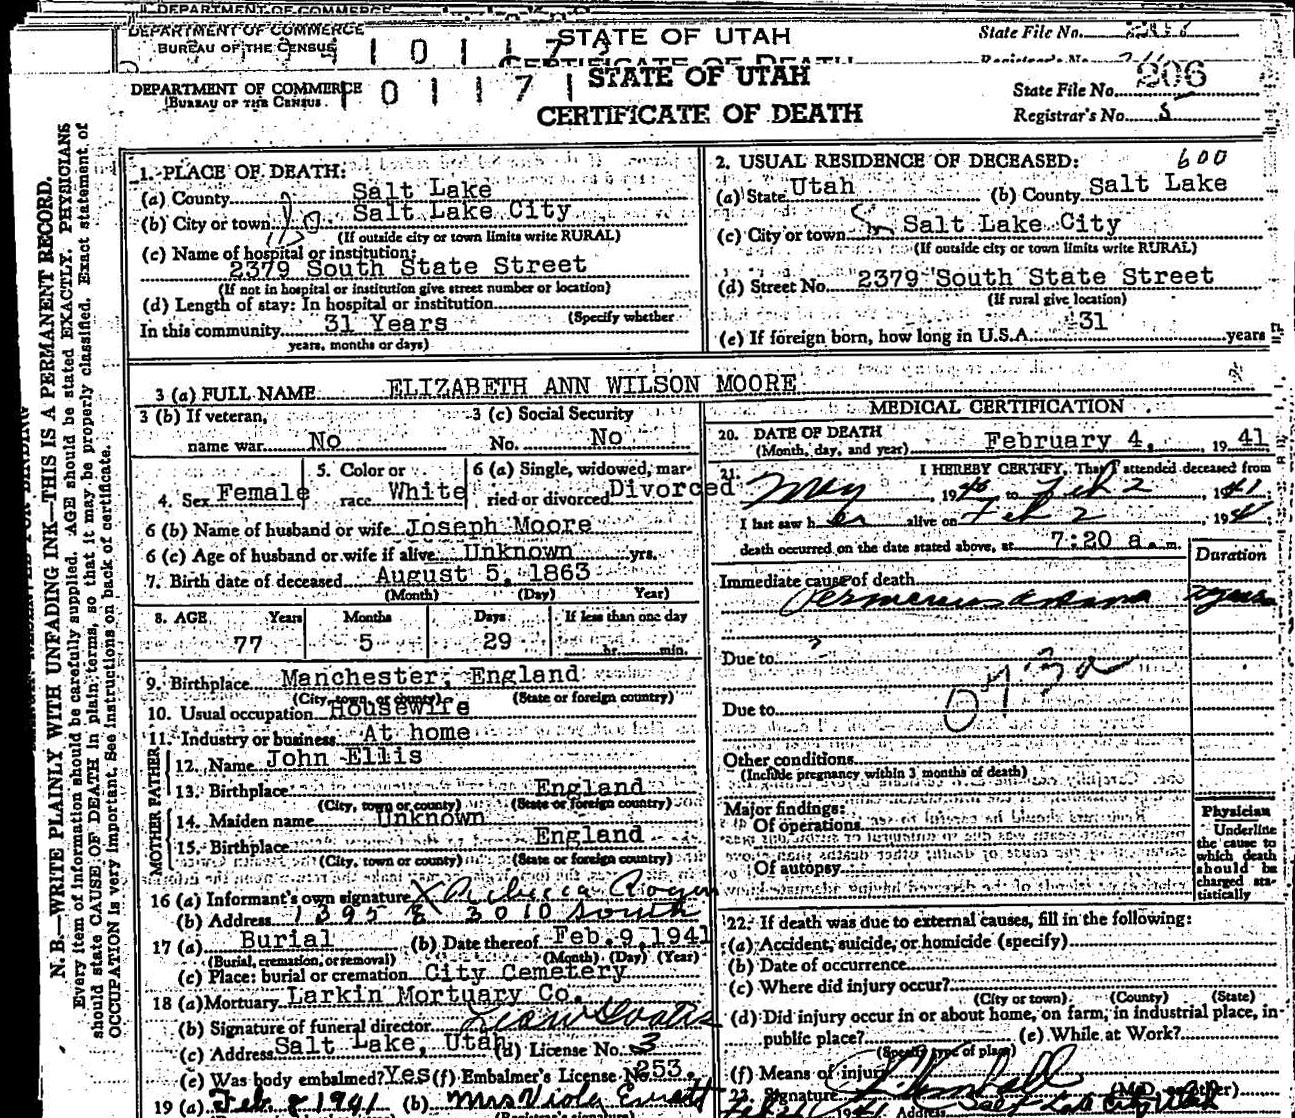 DEPARTMENT OF COMMERCE
DEPARTMENT OF COMMERCE
BUREAU OF THE CENSUS
STATE OF UTAH
State File No.
CERTIFICATE OF DEATH
Registrar's No.
DEPARTMENT OF COMMERCE
BUREAU OF THE CENSUS
0 1 1 7 1
STATE OF UTAH
CERTIFICATE OF DEATH
State File No. 206
Registrar's No. 5
N. B.—WRITE PLAINLY WITH UNFADING INK—THIS IS A PERMANENT RECORD.
Every item of information should be carefully supplied. AGE should be stated EXACTLY. PHYSICIANS
should state CAUSE OF DEATH in plain terms, so that it may be properly classified. Exact statement of
OCCUPATION is very important. See instructions on back of certificate.
1. PLACE OF DEATH:
(a) County Salt Lake
(b) City or town Salt Lake City
(If outside city or town limits write RURAL)
(c) Name of hospital or institution:
2379 South State Street
(If not in hospital or institution give street number or location)
(d) Length of stay: In hospital or institution
(Specify whether
In this community 31 Years
years, months or days)
2. USUAL RESIDENCE OF DECEASED: 600
(a) State Utah (b) County Salt Lake
(c) City or town Salt Lake City
(If outside city or town limits write RURAL)
(d) Street No. 2379 South State Street
(If rural give location)
(e) If foreign born, how long in U.S.A. 31 years
3 (a) FULL NAME ELIZABETH ANN WILSON MOORE
3 (b) If veteran,
name war No
3 (c) Social Security
No. No
4. Sex Female
5. Color or
race White
6 (a) Single, widowed, mar-
ried or divorced Divorced
6 (b) Name of husband or wife Joseph Moore
6 (c) Age of husband or wife if alive Unknown yrs.
7. Birth date of deceased August 5, 1863
(Month) (Day) Year)
8. AGE Years Months Days If less than one day
77 5 29 hr. min.
9. Birthplace Manchester, England
(City, town or county) (State or foreign country)
10. Usual occupation Housewife
11. Industry or business At home
FATHER
12. Name John Ellis
13. Birthplace England
(City, town or county) (State or foreign country)
MOTHER
14. Maiden name Unknown
15. Birthplace England
(City, town or county) (State or foreign country)
16 (a) Informant's own signature X Rebecca
(b) Address 1395 E 3010 South
17 (a) Burial (b) Date thereof Feb. 9, 1941
(Burial, cremation, or removal) (Month) (Day) (Year)
(c) Place: burial or cremation City Cemetery
18 (a) Mortuary Larkin Mortuary Co.
(b) Signature of funeral director
(c) Address Salt Lake, Utah (d) License No. 3
(e) Was body embalmed? Yes (f) Embalmer's License No. 253.
19 (a) Feb 8 1941 (b) Mrs Viola
(Registrar's signature)
MEDICAL CERTIFICATION
20. DATE OF DEATH
(Month, day, and year) February 4, 19 41
21. I HEREBY CERTIFY, That I attended deceased from
May, 19 40 to Feb 2, 19 41;
I last saw h er alive on Feb 2, 19 41;
death occurred on the date stated above, at 7:20 a.m.
Duration
Immediate cause of death
Due to ?
Due to
Other conditions
(Include pregnancy within 3 months of death)
Major findings:
Of operations
Of autopsy
Physician
Underline
the cause to
which death
should be
charged sta-
tistically
22. If death was due to external causes, fill in the following:
(a) Accident, suicide, or homicide (specify)
(b) Date of occurrence
(c) Where did injury occur?
(City or town) (County) (State)
(d) Did injury occur in or about home, on farm, in industrial place, in
public place? (e) While at Work?
(Specify type of place)
(f) Means of injury
23. Signature (M.D. or other)
1941 Address